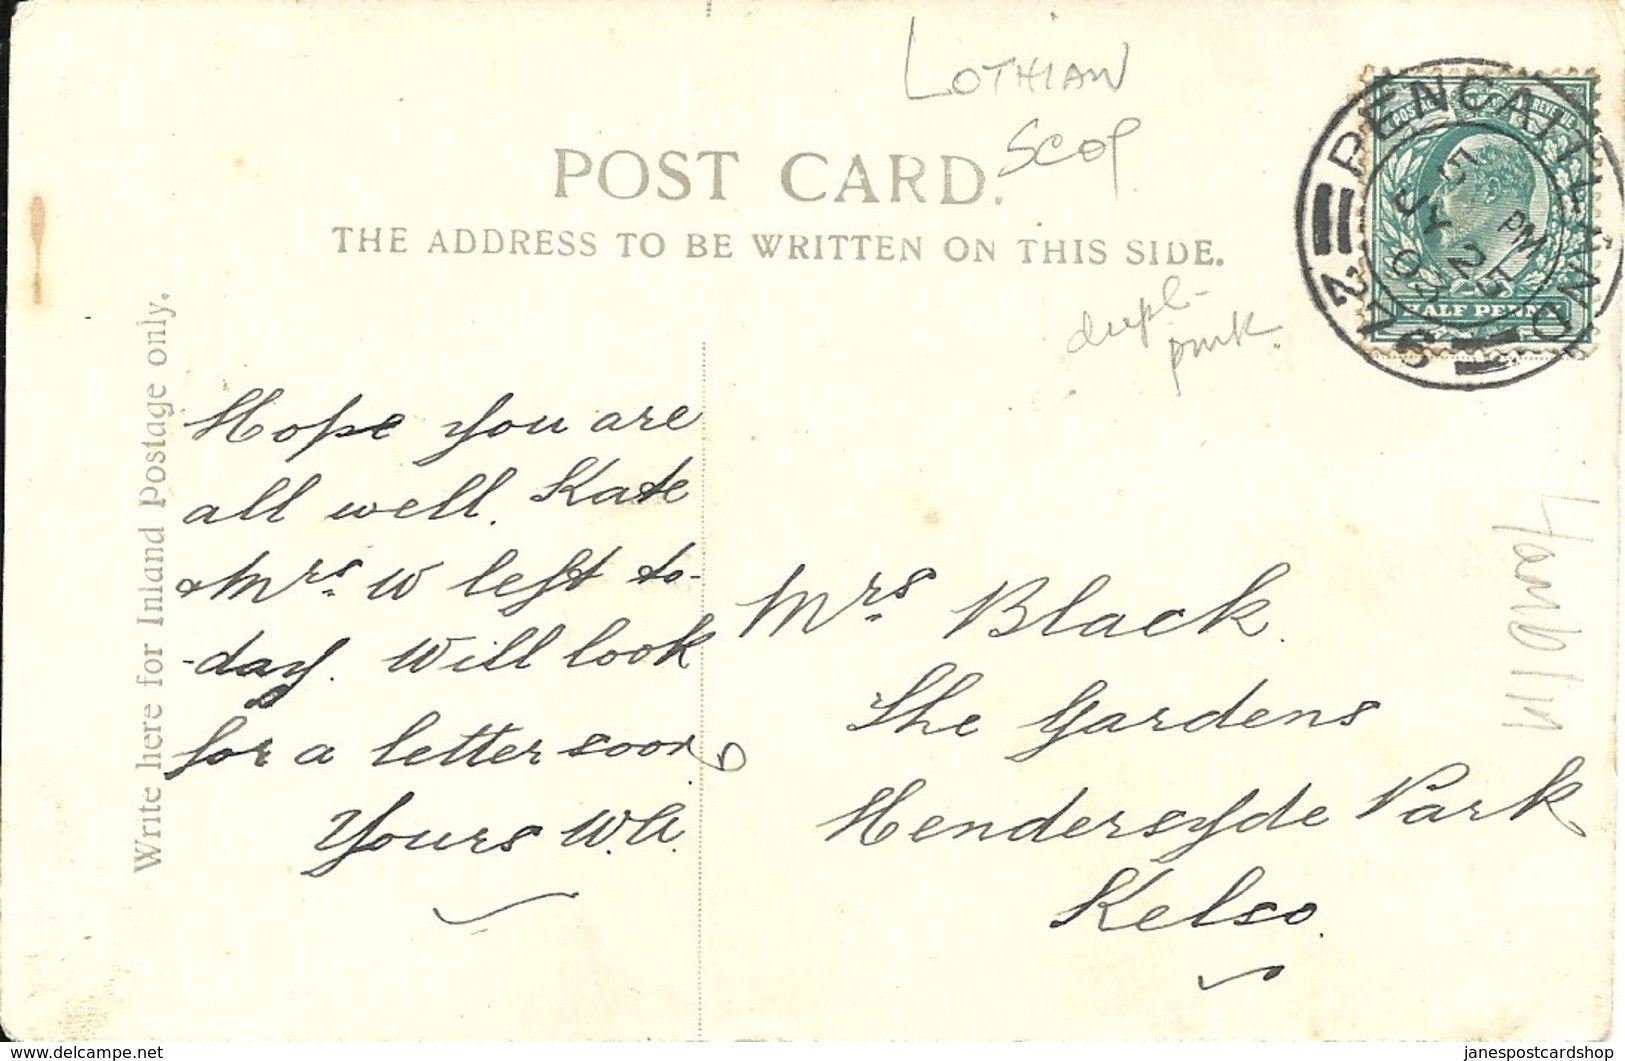 LOTHIAN
SCOT
POST CARD.
THE ADDRESS TO BE WRITTEN ON THIS SIDE.
dupl-
pmk.
PENCAITLAND
5 PM
JY 25
S.2.N
POSTAGE REVENUE
HALF PENNY
Write here for Inland Postage only.
Hope you are
all well. Kate
& Mrs. W left to-
-day. Will look
for a letter soon
Yours W.A.
Mrs Black.
The Gardens
Hendersyde Park
Kelso.
www.delcampe.net
janespostcardshop